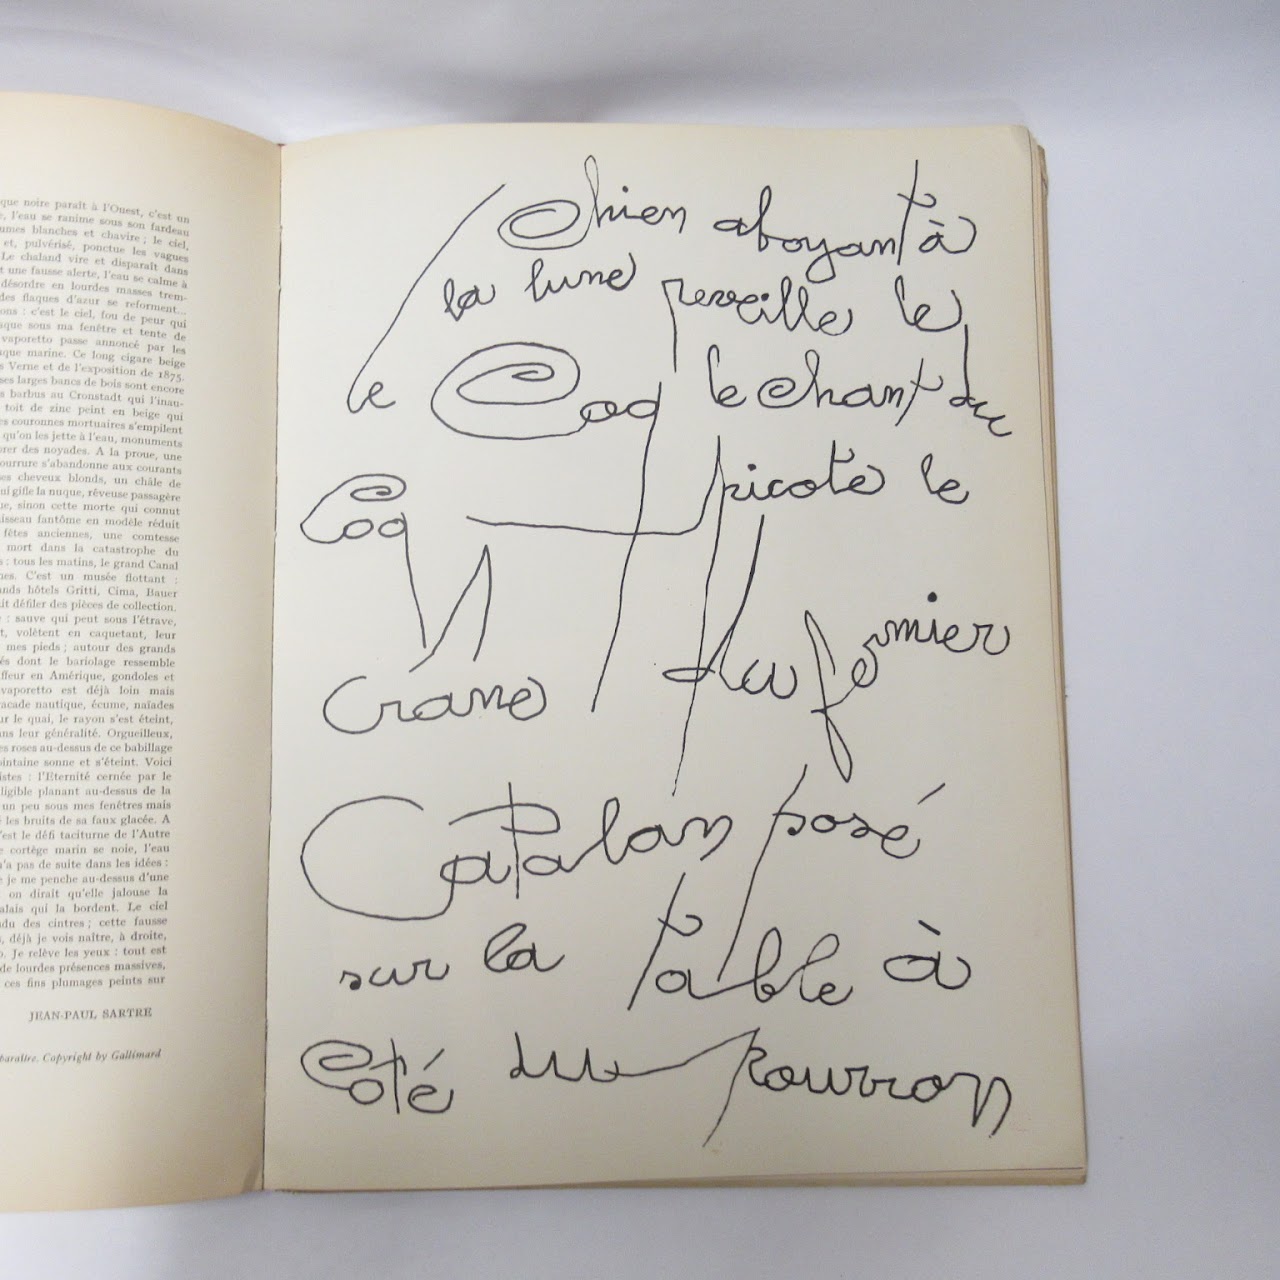 que noire paraît à l'Ouest, c'est un
, l'eau se ranime sous son fardeau
umes blanches et chavire ; le ciel,
et, pulvérisé, ponctue les vagues
Le chaland vire et disparaît dans
t une fausse alerte, l'eau se calme à
désordre en lourdes masses trem-
des flaques d'azur se reforment...
ons : c'est le ciel, fou de peur qui
sque sous ma fenêtre et tente de
vaporetto passe annoncé par les
aque marine. Ce long cigare beige
s Verne et de l'exposition de 1875.
ses larges bancs de bois sont encore
s barbus au Cronstadt qui l'inau-
toit de zinc peint en beige qui
es couronnes mortuaires s'empilent
qu'on les jette à l'eau, monuments
rer des noyades. A la proue, une
ourrure s'abandonne aux courants
es cheveux blonds, un châle de
ui gifle la nuque, rêveuse passagère
ue, sinon cette morte qui connut
isseau fantôme en modèle réduit
fêtes anciennes, une comtesse
mort dans la catastrophe du
: tous les matins, le grand Canal
nes. C'est un musée flottant :
ands hôtels Gritti, Cima, Bauer
it défiler des pièces de collection.
: sauve qui peut sous l'étrave,
t, volètent en caquetant, leur
mes pieds ; autour des grands
és dont le bariolage ressemble
ffleur en Amérique, gondoles et
vaporetto est déjà loin mais
acade nautique, écume, naïades
ur le quai, le rayon s'est éteint,
ns leur généralité. Orgueilleux,
es roses au-dessus de ce babillage
ointaine sonne et s'éteint. Voici
istes : l'Eternité cernée par le
lligible planant au-dessus de la
un peu sous mes fenêtres mais
é les bruits de sa faux glacée. A
'est le défi taciturne de l'Autre
e cortège marin se noie, l'eau
n'a pas de suite dans les idées :
e je me penche au-dessus d'une
on dirait qu'elle jalouse la
alais qui la bordent. Le ciel
du des cintres ; cette fausse
, déjà je vois naître, à droite,
o. Je relève les yeux : tout est
de lourdes présences massives,
ces fins plumages peints sur
JEAN-PAUL SARTRE
paraître. Copyright by Gallimard
le Chien aboyant à
la lune reveille le
Coq le chant du
Coq picote le
Crane du fermier
Catalan posé
sur la table à
Coté du pourron